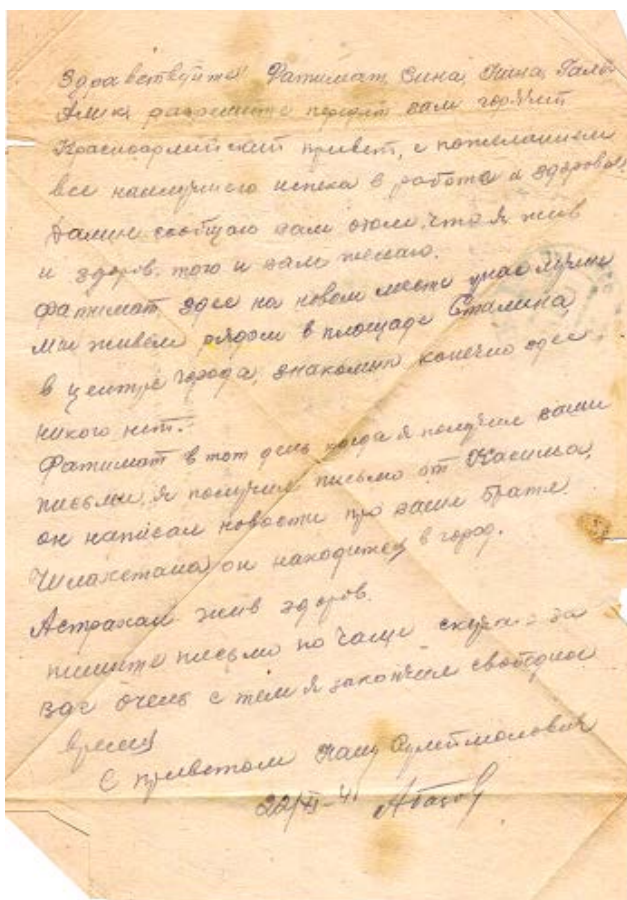 Здравствуйте! Фатимат, Зина, Нина, Галя
Алик, разрешите передат вам горячий
Красноармейский привет, с пожеланием
все наилучшего успеха в работе и здоровье!
Далее сообщаю вам отом, что я жив
и здоров. того и вам желаю.
Фатимат здес на новом месте унас лучше
мы живем рядом в площаде Сталина,
в центре города, знакомых конечно здес
никого нет.
Фатимат в тот день когда я получил ваши
письмы, я получил письмо от
он написал новости про ваше братя.
он находится в город.
Астрахан жив здоров.
пишите письмо по чаще скучаю за
вас очень с тем я закончил свободное
время
С приветом ваш
22/XI-41 Абазов